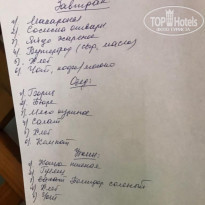 Завтрак
1) Макароны
2) Сосиска отварн.
3) Яйцо жареное
4) Бутерброд (сыр, масло)
5) Хлеб
6) Чай, кофе/молоко
Обед:
1) Борщ
2) Пюре
3) Мясо куриное
4) Салат
5) Хлеб
6) Компот
Ужин:
1) Каша пшенная
2) Гуляш
3) Помидор соленый
4) Хлеб
5) Чай
TOP HOTELS